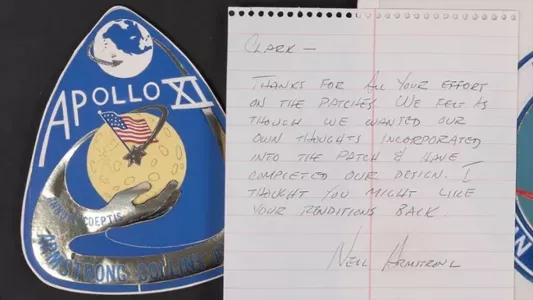 APOLLO XI
COEPTIS
ARMSTRONG COLLINS
CLARK —
THANKS FOR ALL YOUR EFFORT
ON THE PATCHES. WE FELT AS
THOUGH WE WANTED OUR
OWN THOUGHTS INCORPORATED
INTO THE PATCH & HAVE
COMPLETED OUR DESIGN. I
THOUGHT YOU MIGHT LIKE
YOUR RENDITIONS BACK.
NEIL ARMSTRONG